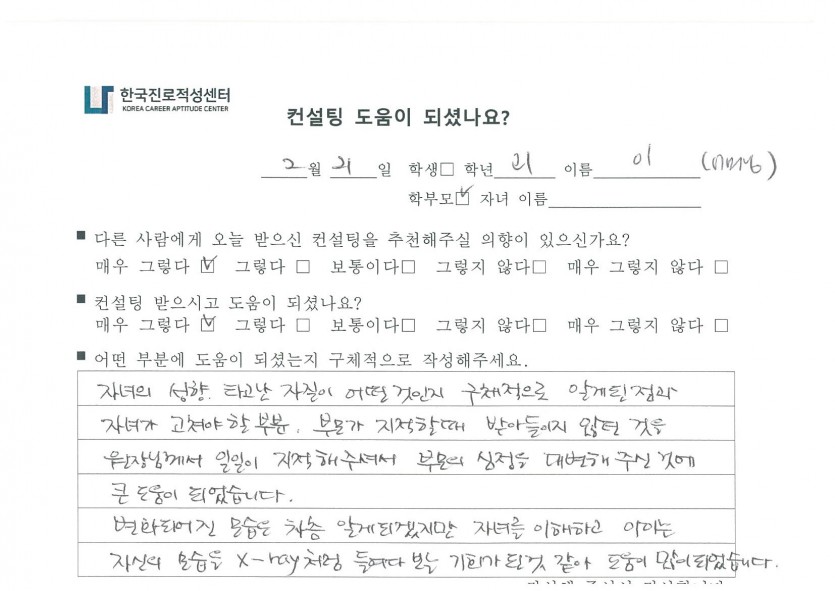 한국진로적성센터
KOREA CAREER APTITUDE CENTER
컨설팅 도움이 되셨나요?
2월 21일 학생□ 학년 고1 이름 이
학부모☑ 자녀 이름
■ 다른 사람에게 오늘 받으신 컨설팅을 추천해주실 의향이 있으신가요?
매우 그렇다 ☑ 그렇다 □ 보통이다□ 그렇지 않다□ 매우 그렇지 않다 □
■ 컨설팅 받으시고 도움이 되셨나요?
매우 그렇다 ☑ 그렇다 □ 보통이다□ 그렇지 않다□ 매우 그렇지 않다 □
■ 어떤 부분에 도움이 되셨는지 구체적으로 작성해주세요.
자녀의 성향. 타고난 자질이 어떤것인지 구체적으로 알게된점과
자녀가 고쳐야할부분, 부모가 지적할때 받아들이지 않던 것을
원장님께서 일일이 지적해주셔서 부모의 심정을 대변해 주신것에
큰 도움이 되었습니다.
변화되어진 모습은 차츰 알게되겠지만 자녀를 이해하고 아이는
자신의 모습을 X-ray처럼 들여다 보는 기회가 된것 같아 도움이 많이되었습니다.